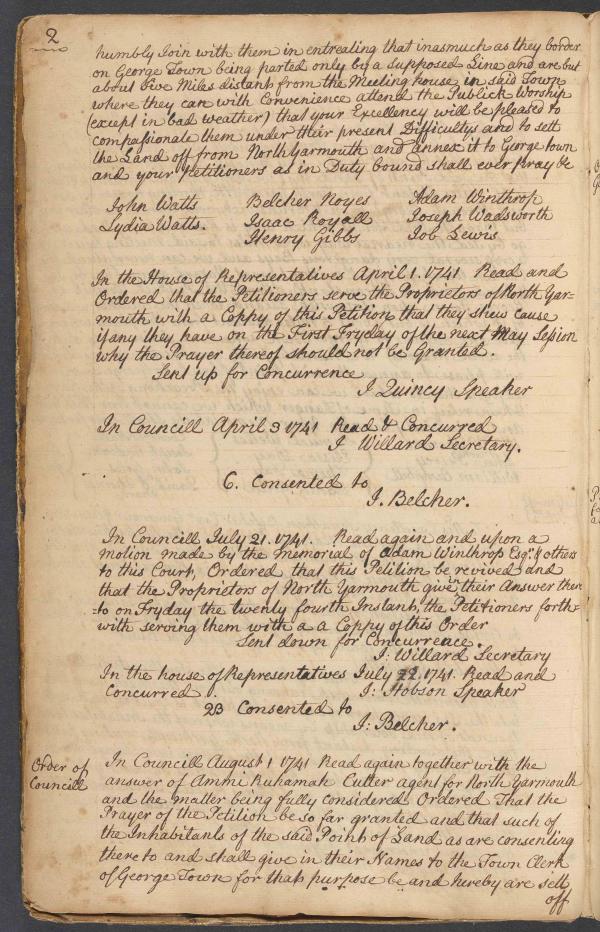 2
humbly Join with them in entreating that inasmuch as they border
on George Town being parted only by a supposed Line and are but
about Five Miles distant from the Meeting house in said Town
where they can with Convenience attend the Publick Worship
(except in bad weather) that your Excellency will be pleased to
compassionate them under their present Difficultys and to sett
the Land off from North Yarmouth and annex it to George town
and your Petitioners as in Duty bound shall ever pray &c
John Watts Belcher Noyes Adam Winthrop
Lydia Watts. Isaac Royall Joseph Wadsworth
Henry Gibbs Job Lewis
In the House of Representatives April 1. 1741 Read and
Ordered that the Petitioners serve the Proprietors of North Yar=
mouth with a Coppy of this Petition that they shew cause
if any they have on the First Fryday of the next May Session
why the Prayer thereof should not be Granted.
Sent up for Concurrence
J Quincy Speaker
In Councill April 3 1741 Read & Concurred
J Willard Secretary.
6. Consented to
J. Belcher.
In Councill July 21. 1741. Read again and upon a
motion made by the Memorial of Adam Winthrop Esqr. & others
to this Court, Ordered that this Petition be revived and
that the Proprietors of North Yarmouth give in their Answer there
=to on Fryday the twenty fourth Instant, the Petitioners forth=
with serving them with a a Coppy of this Order
Sent down for Concurrence.
J: Willard Secretary
In the house of Representatives July 22. 1741. Read and
Concurred. J: Hobson Speaker
23 Consented to
J: Belcher.
Order of
Councill
In Councill August 1 1741 Read again together with the
answer of Ammi Ruhamah Cutter agent for North Yarmouth
and the matter being fully considered Ordered That the
Prayer of the Petition be so far granted and that such of
the Inhabitants of the said Point of Land as are consenting
there to and shall give in their Names to the Town Clerk
of George Town for that purpose be and hereby are sett
off